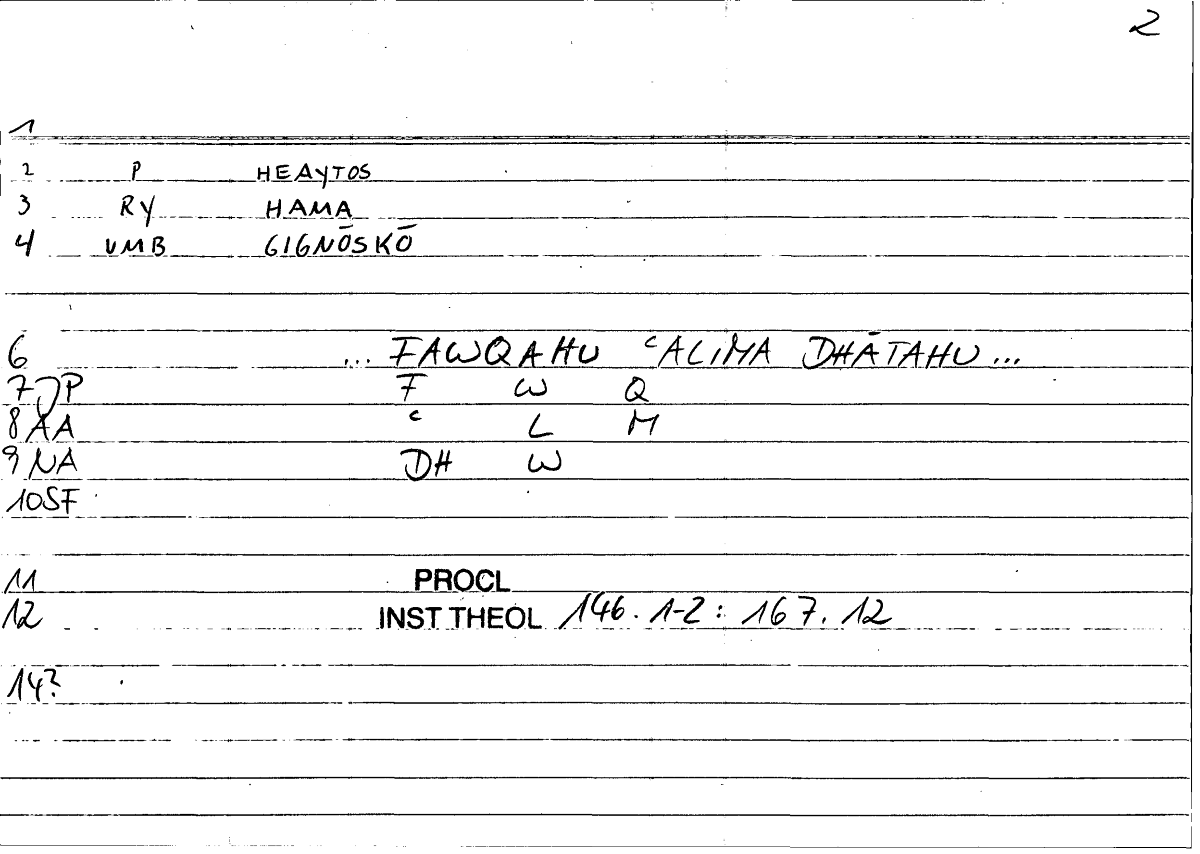 2
1
2 P HEAYTOS
3 RY HAMA
4 VMB GIGNŌSKŌ
6 ... FAWQAHU ʿALIMA DHĀTAHU ...
7 JP F W Q
8 AA ʿ L M
9 NA DH W
10 SF
11 PROCL
12 INST THEOL 146.1-2: 167.12
14?